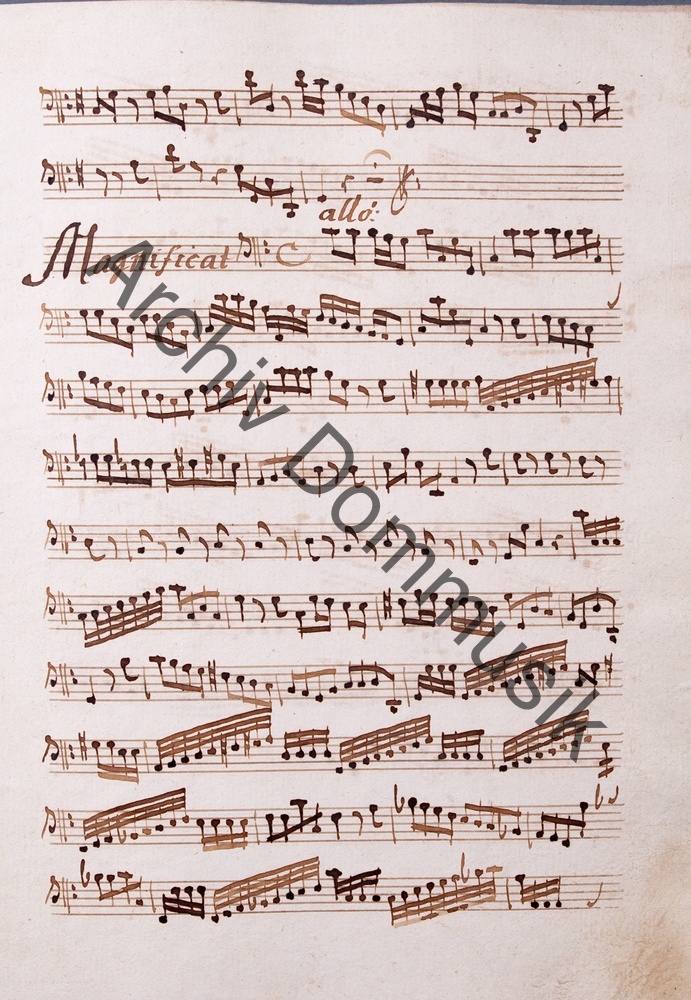 allo:
Magnificat
Archiv Dommusik